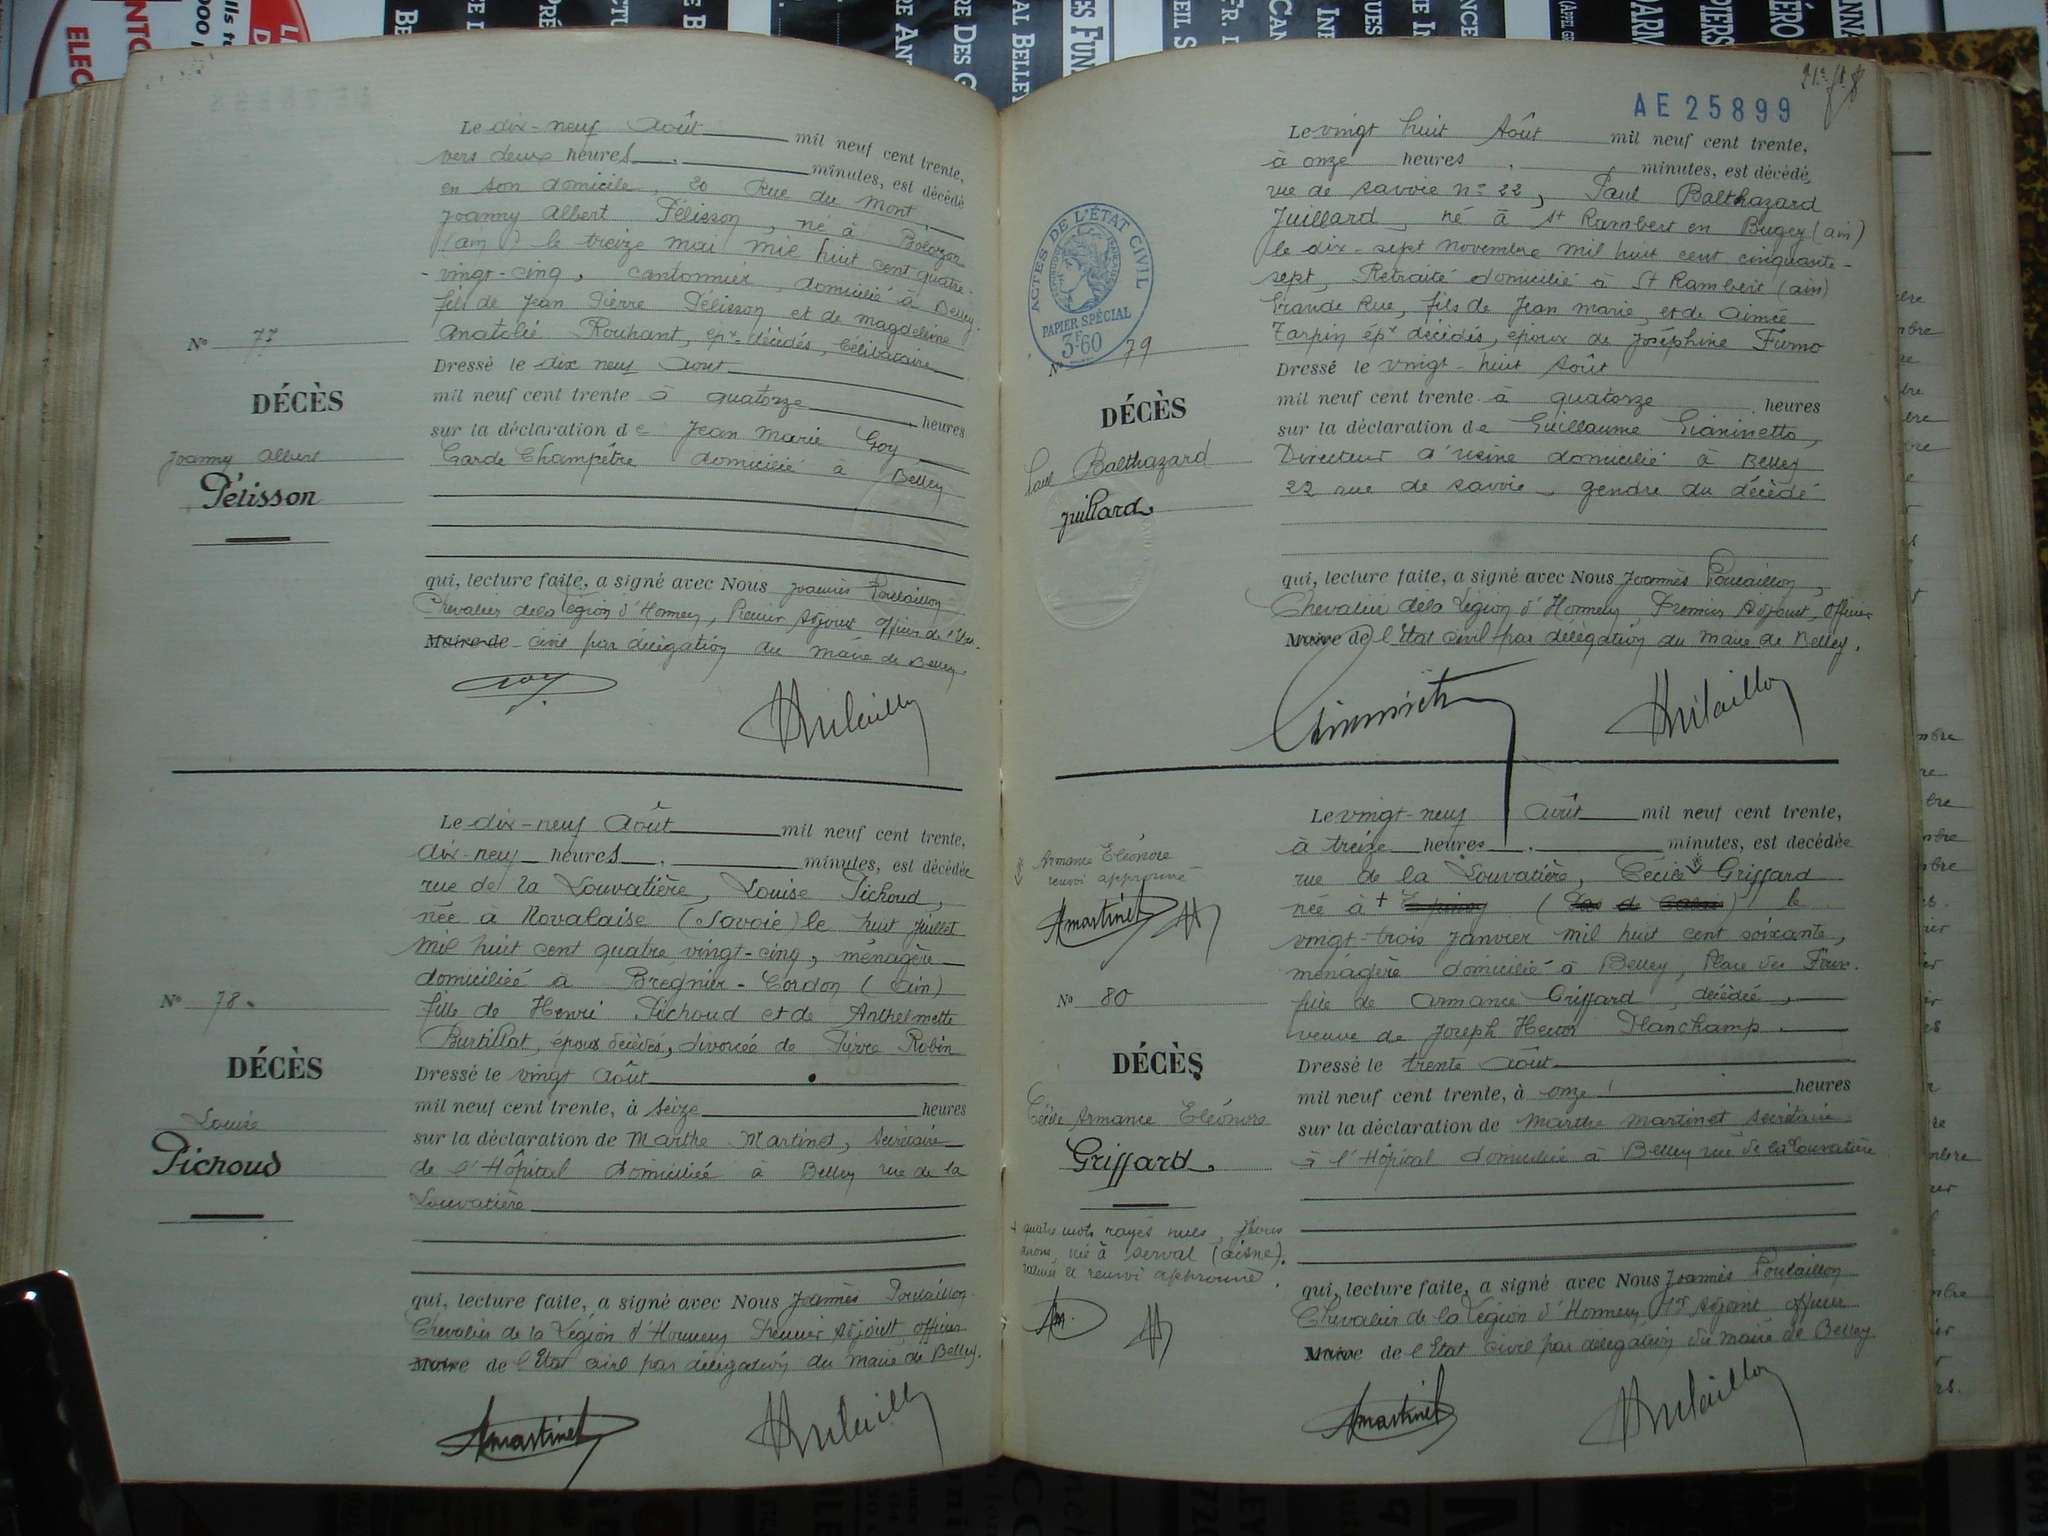 AE 25899
Le dix-neuf Août mil neuf cent trente,
vers deux heures minutes, est décédé
en son domicile, 20 Rue du Mont
Joanny Albert Pélisson, né à
(ain) le treize mai mil huit cent quatre-
-vingt-cinq, cantonnier, domicilié à Belley
fils de Jean Pierre Pélisson et de Magdeleine
Anatolie Rouhant, épx décédés, Célibataire
Dressé le dix neuf Aout
mil neuf cent trente à quatorze heures
sur la déclaration de Jean Marie Goy
Garde Champêtre domicilié à Belley
qui, lecture faite, a signé avec Nous Joannès Poulaillon
Chevalier de la Légion d'Honneur, Premier Adjoint officier de l'Etat
Maire de civil par délégation du maire de Belley.
No 77
DÉCÈS
Joanny Albert
Pélisson
Le dix-neuf Août mil neuf cent trente,
dix-neuf heures minutes, est décédée
rue de la Louvatière, Louise Pichoud,
née à Novalaise (Savoie) le huit juillet
mil huit cent quatre vingt-cinq, ménagère
domiciliée à Bregnier-Cordon (ain)
fille de Henri Pichoud et de Anthelmette
Burtillat, époux décédés, divorcée de Pierre Robin
Dressé le vingt Août
mil neuf cent trente, à seize heures
sur la déclaration de Marthe Martinet, secrétaire
de l'Hôpital domiciliée à Belley rue de la
Louvatière
qui, lecture faite, a signé avec Nous Joannès Poulaillon
Chevalier de la Légion d'Honneur Premier Adjoint officier
Maire de l'Etat civil par délégation du maire de Belley.
No 78
DÉCÈS
Louise
Pichoud
AMartinet
Le vingt huit Août mil neuf cent trente,
à onze heures minutes, est décédé,
rue de Savoie n° 22, Paul Balthazard
Juillard, né à St Rambert en Bugey (ain)
le dix-sept novembre mil huit cent cinquante-
sept, Retraité domicilié à St Rambert (ain)
Grande Rue, fils de Jean Marie, et de Aimée
Tarpin épx décédés, époux de Joséphine Fumo
Dressé le vingt-huit Août
mil neuf cent trente à quatorze heures
sur la déclaration de Guillaume Gianinetto,
Directeur d'usine domicilié à Belley
22 rue de Savoie, gendre du décédé
qui, lecture faite, a signé avec Nous Joannès Poulaillon,
Chevalier de la Légion d'Honneur, Premier Adjoint, officier
Maire de l'Etat civil par délégation du maire de Belley.
ACTES DE L'ÉTAT CIVIL
PAPIER SPÉCIAL
3F60
No 79
DÉCÈS
Paul Balthazard
Juillard
Le vingt-neuf Août mil neuf cent trente,
à treize heures minutes, est decédée
rue de la Louvatière, Cécile Griffard
née à + le
vingt-trois janvier mil huit cent soixante,
ménagère domicilié à Belley, Place des
fille de Armance Griffard, décédée,
veuve de Joseph Hector Planchamp.
Dressé le trente Août
mil neuf cent trente, à onze heures
sur la déclaration de Marthe Martinet secrétaire
à l'Hôpital domiciliée à Belley rue de la Louvatière
qui, lecture faite, a signé avec Nous Joannès Poulaillon
Chevalier de la Légion d'Honneur 1er Adjoint officier
Maire de l'Etat civil par délégation du maire de Belley
Armance Eléonore
renvoi approuvé
AMartinet
No 80
DÉCÈS
Cécile Armance Eléonore
Griffard
+ quatre mots rayés nuls,
née à Serval (aisne).
et renvoi approuvé.
AMartinet